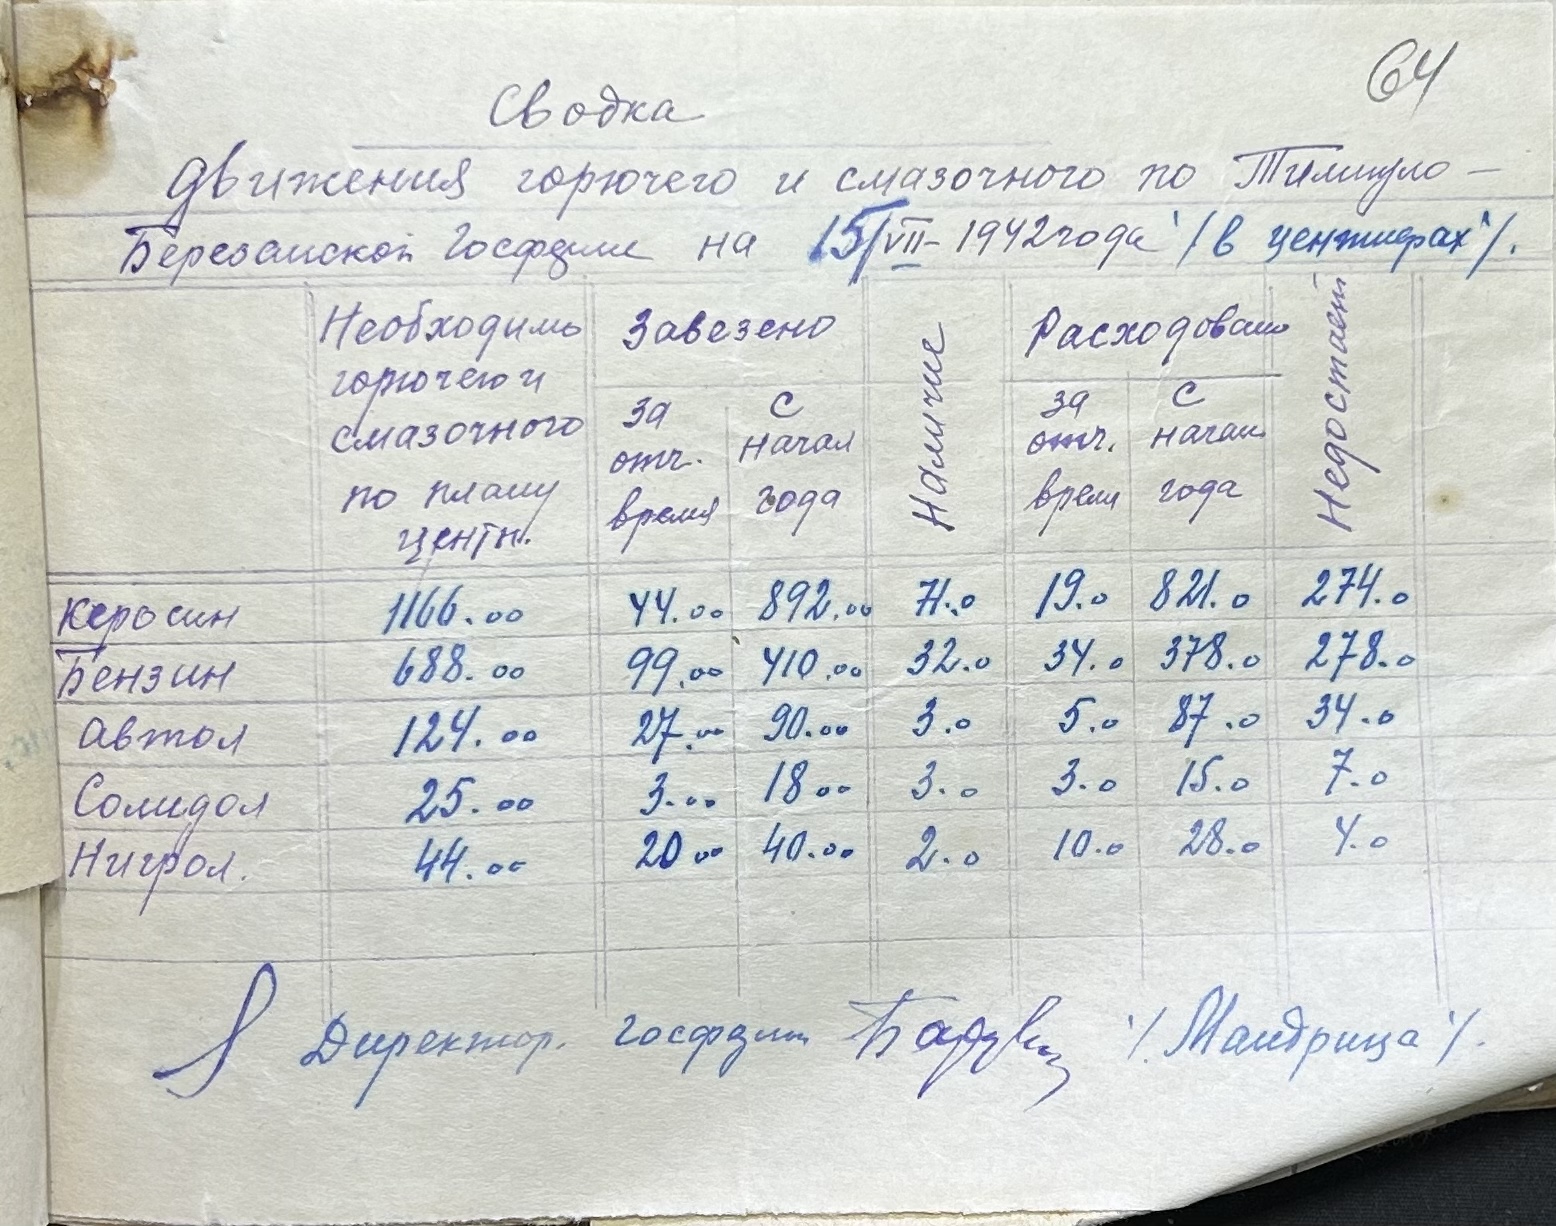 64
Сводка
движения горючего и смазочного по Тилигуло-
Березанской Госфзгии на 15/VII-1942 года /в центнерах/.
Необходимь горючего и смазочного по плану центн. | Завезено за отч. время | Завезено с начал года | Наличие | Расходовано за отч. время | Расходовано с начал года | Недостает
Керосин 1166.00 44.00 892.00 71.0 19.0 821.0 274.0
Бензин 688.00 99.00 410.00 32.0 34.0 378.0 278.0
Автол 124.00 27.00 90.00 3.0 5.0 87.0 34.0
Солидол 25.00 3.00 18 00 3.0 3.0 15.0 7.0
Нигрол. 44.00 20 00 40.00 2.0 10.0 28.0 4.0
Директор. /Мандрица/.